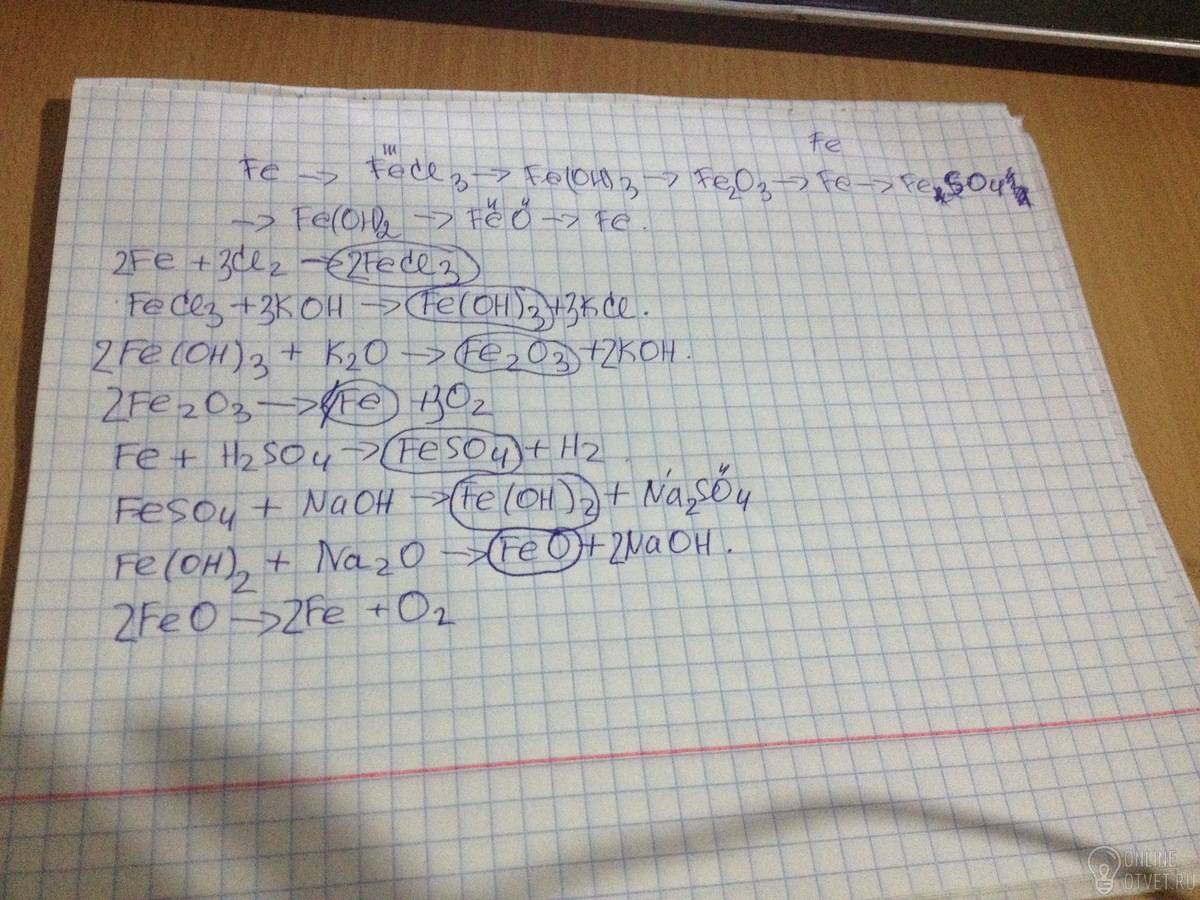 Fe
Fe → FeCl3 → Fe(OH)3 → Fe2O3 → Fe → FeSO4
III
→ Fe(OH)2 → FeO → Fe.
II II
2Fe + 3Cl2 → 2FeCl3
FeCl3 + 3KOH → Fe(OH)3 + 3KCl.
2Fe(OH)3 + K2O → Fe2O3 + 2KOH.
2Fe2O3 → Fe + 3O2
Fe + H2SO4 → FeSO4 + H2
FeSO4 + NaOH → Fe(OH)2 + Na2SO4
I II
Fe(OH)2 + Na2O → FeO + 2NaOH.
2FeO → 2Fe + O2
ONLINE
OTVET.RU